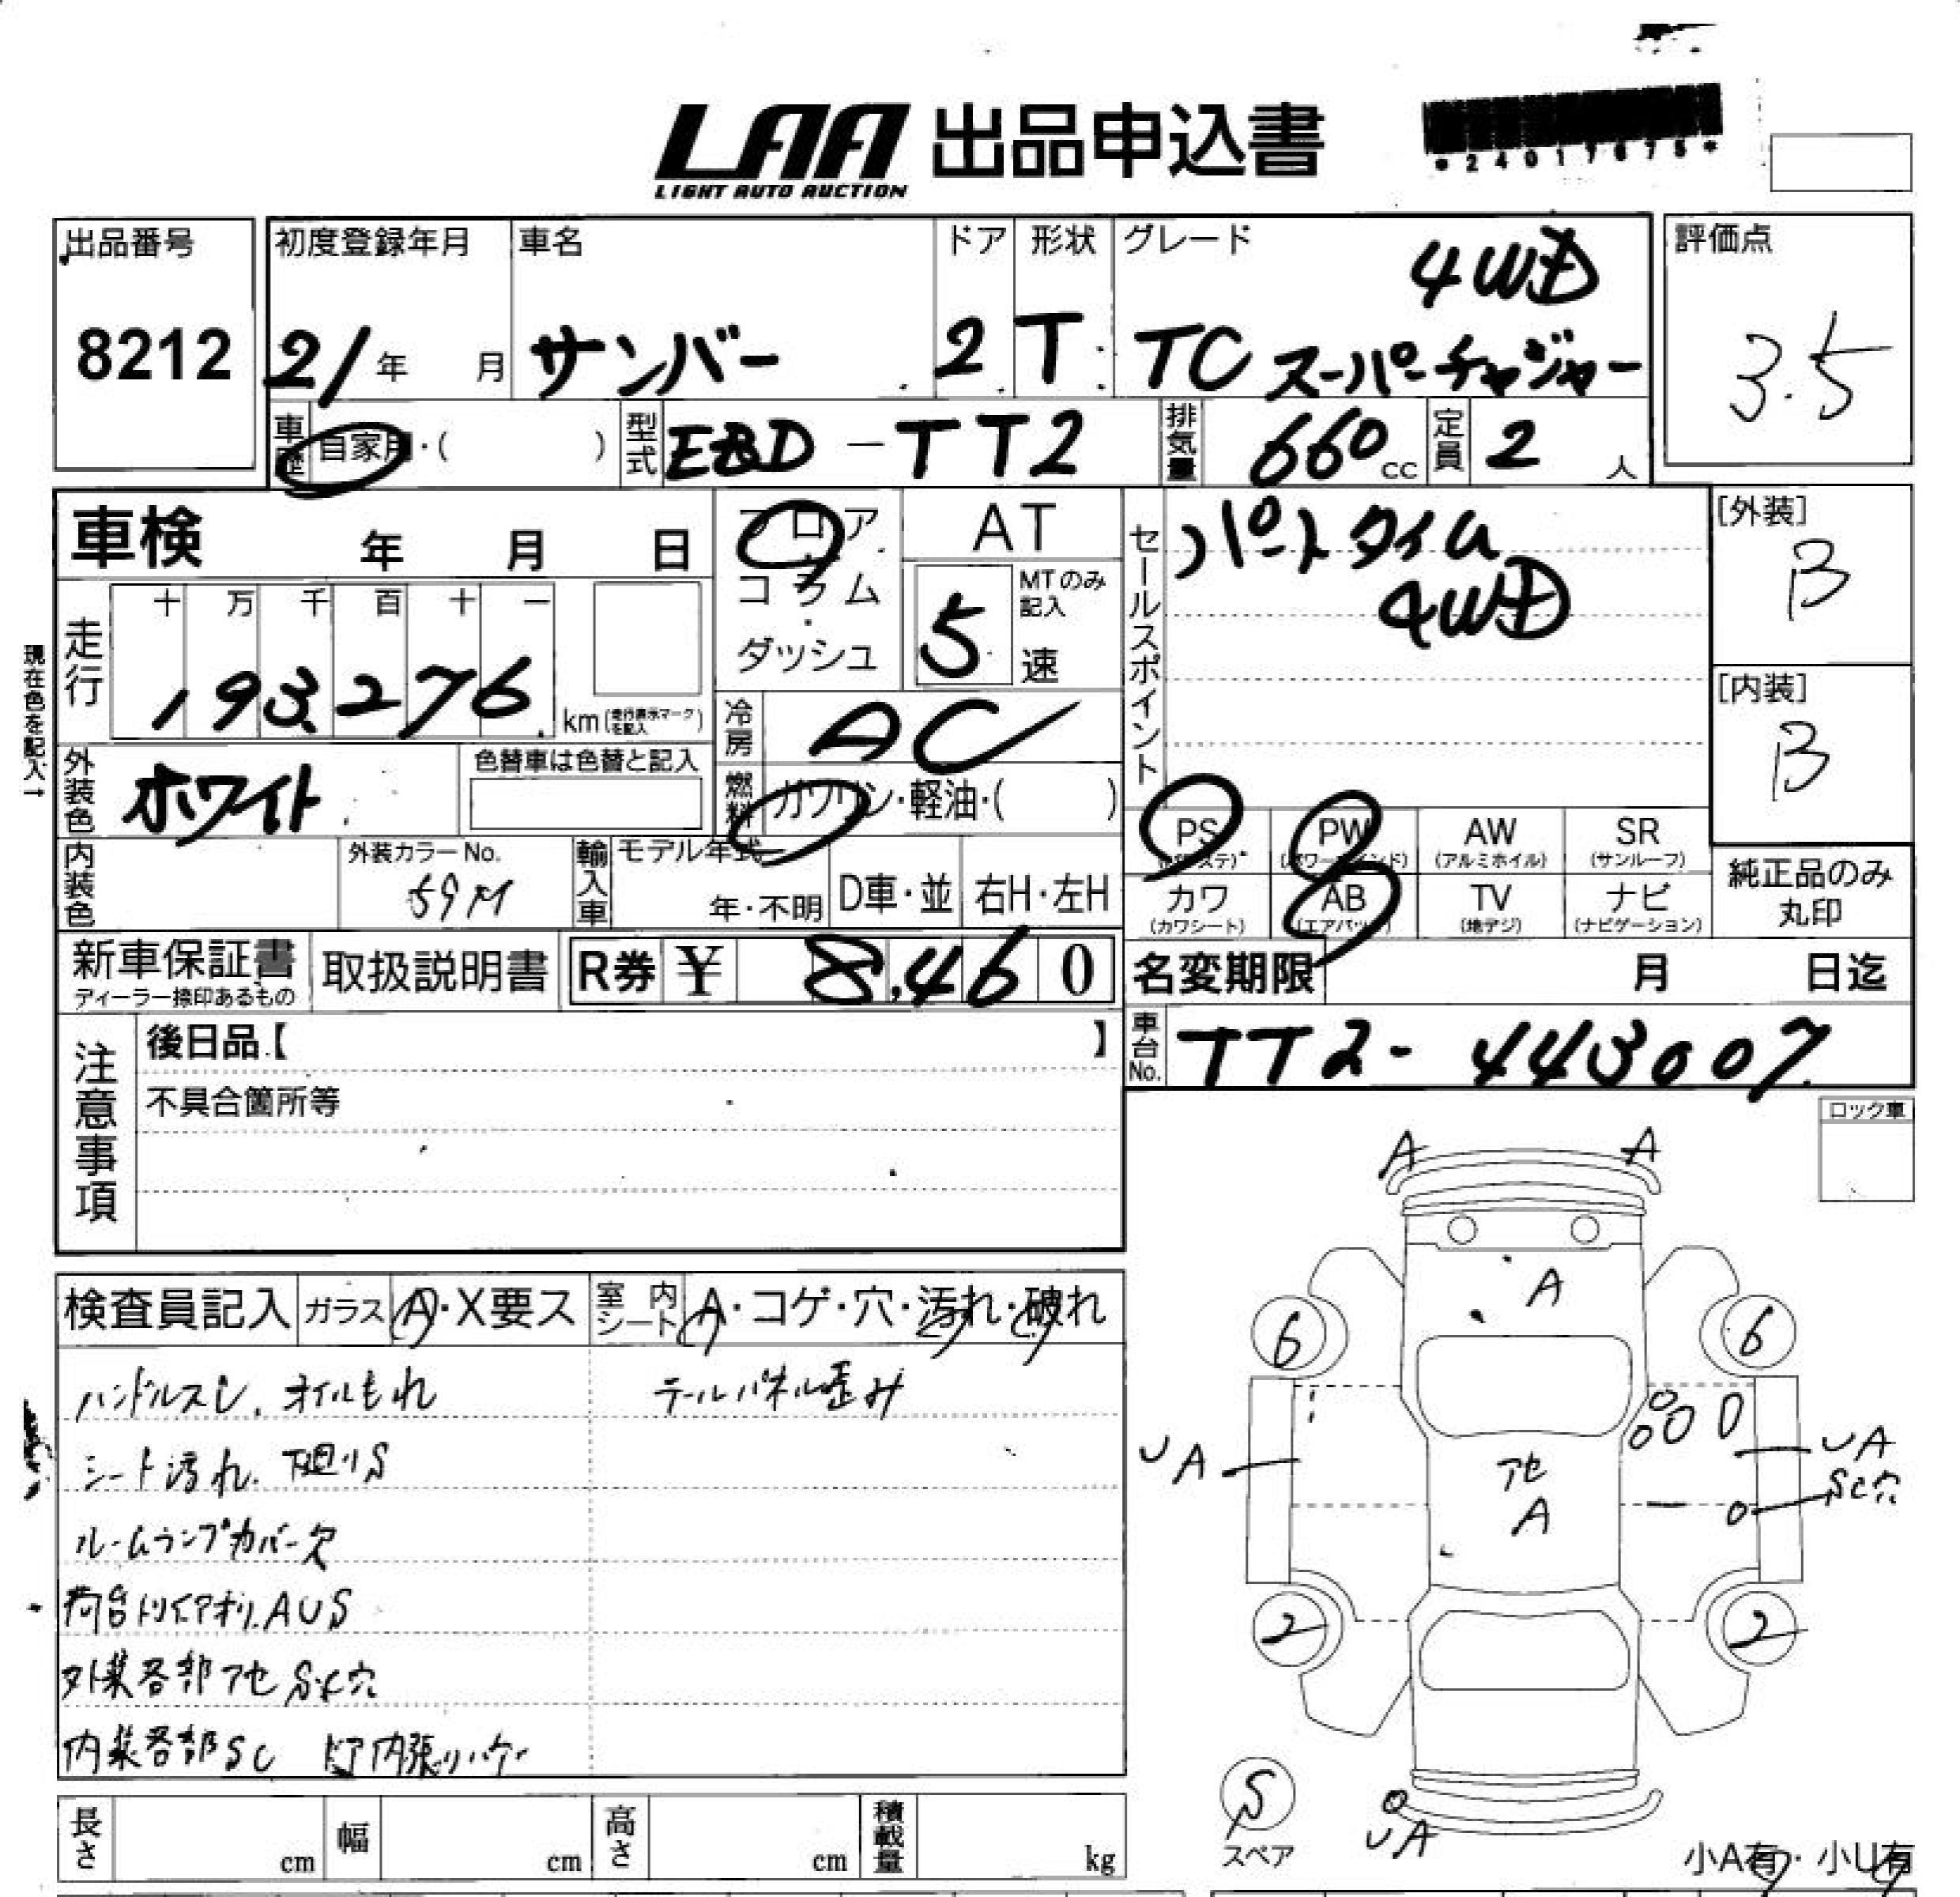 LAA 出品申込書
LIGHT AUTO AUCTION
*24017675*
出品番号
8212
初度登録年月
21年 月
車名
サンバー
ドア
2
形状
T
グレード
4WD
TC スーパーチャジャー
評価点
3.5
車歴 自家用・( )
型式 EBD-TT2
排気量 660cc
定員 2人
車検 年 月 日
フロア・コラム・ダッシュ
AT
5 MTのみ記入 速
セールスポイント
パートタイム
4WD
[外装]
B
[内装]
B
現在色を記入→
走行
十 万 千 百 十 一
193,276 km(走行表示マークを記入)
冷房 AC
外装色 ホワイト
色替車は色替と記入
燃料 ガソリン・軽油・( )
PS (パワステ) PW (パワーウインド) AW (アルミホイル) SR (サンルーフ)
カワ (カワシート) AB (エアバック) TV (地デジ) ナビ (ナビゲーション)
純正品のみ丸印
内装色
外装カラーNo.
59M
輸入車 モデル年式
年・不明 D車・並 右H・左H
新車保証書
ディーラー捺印あるもの
取扱説明書
R券 ¥ 8,460
名変期限 月 日迄
車台No. TT2-443007
注意事項
後日品【 】
不具合箇所等
ロック車
検査員記入 ガラス A・X要ス 室内シート A・コゲ・穴・汚れ・破れ
ハンドルスレ、オイルもれ
テールパネル歪み
シート汚れ、下廻りS
ルームランプカバー欠
荷台トリイアオリ、AUS
外装各部アセ S.C穴
内装各部SC ドア内張りハゲ
A A
A
6 6
UA
UA
SC穴
アセ
A
2 2
S
スペア
UA
小A有・小U有
長さ cm 幅 cm 高さ cm 積載量 kg